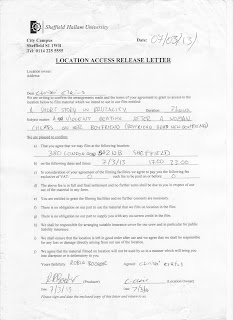 Sheffield Hallam University
City Campus
Sheffield S1 1WB
Tel 0114 225 5555
Date: 07/03/13
LOCATION ACCESS RELEASE LETTER
Location owner:
Address:
Dear
We are writing to confirm the arrangements made and the terms of your agreement to grant us access to the location below to film material which we intend to use in our film entitled
A SHORT STORY ON BRUTALITY Duration:
Subject matter: A VIOLENT BEATING AFTER A WOMAN CHEATS ON HER BOYFRIEND
We are pleased to confirm:
a) That you agree that we may film at the following location:
380 LONDON ROAD SHEFFIELD
on the following dates and times: 7/3/13
in consideration of your agreement of the filming facilities, we agree to pay you the following fee exclusive of VAT: 0 such fee to be paid on or before 0
The above fee is in full and final settlement and no further sums shall be due to you in respect of our use of the material in any form.
You are entitled to grant the filming facilities and no further consents are necessary.
There is no obligation on our part to use the material that we film on location in the film.
There is no obligation on our part to supply you with any on-screen credit in the film.
We shall be responsible for arranging suitable insurance cover for our crew and in particular for public liability insurance.
We shall ensure that the location is left in good order after our use and we agree that we shall be responsible for any loss or damage directly arising from our use of the location.
We agree that the material filmed on location will not be used by us in a manner which will bring you into disrepute or is defamatory to you.
Yours faithfully Agreed:
(Producer) (Location Owner)
7/3/13
Please sign and date the enclosed copy of this letter and return to us.